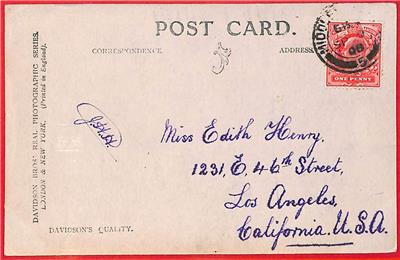 POST CARD.
CORRESPONDENCE.
ADDRESS
ONE PENNY
DAVIDSON BROS' REAL PHOTOGRAPHIC SERIES.
LONDON & NEW YORK. (Printed in England).
Miss Edith Henry,
1231, E. 46th Street,
Los Angeles,
California, U.S.A.
DAVIDSON'S QUALITY.